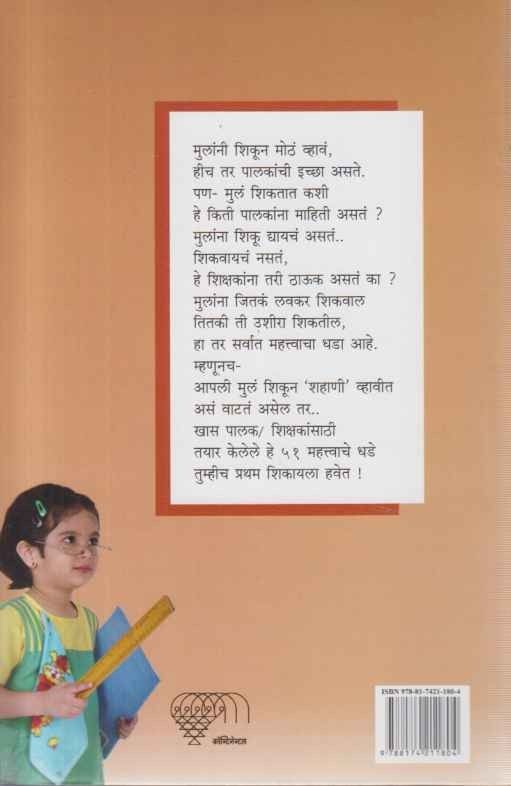 मुलांनी शिकून मोठं व्हावं,
हीच तर पालकांची इच्छा असते.
पण- मुलं शिकतात कशी
हे किती पालकांना माहिती असतं ?
मुलांना शिकू द्यायचं असतं..
शिकवायचं नसतं,
हे शिक्षकांना तरी ठाऊक असतं का ?
मुलांना जितकं लवकर शिकवाल
तितकी ती उशीरा शिकतील,
हा तर सर्वात महत्त्वाचा धडा आहे.
म्हणूनच-
आपली मुलं शिकून ‘शहाणी’ व्हावीत
असं वाटतं असेल तर..
खास पालक/ शिक्षकांसाठी
तयार केलेले हे ५१ महत्त्वाचे धडे
तुम्हीच प्रथम शिकायला हवेत !
कॉन्टिनेन्टल
ISBN 978-81-7421-180-4
9 788174 211804